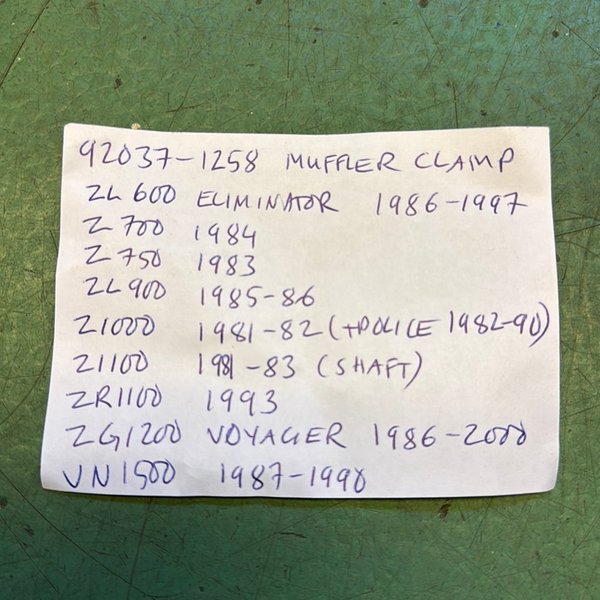 92037-1258 MUFFLER CLAMP
ZL600 ELIMINATOR 1986-1997
Z700 1984
Z750 1983
ZL900 1985-86
Z1000 1981-82 (+POLICE 1982-90)
Z1100 1981-83 (SHAFT)
ZR1100 1993
ZG1200 VOYAGER 1986-2000
VN1500 1987-1990